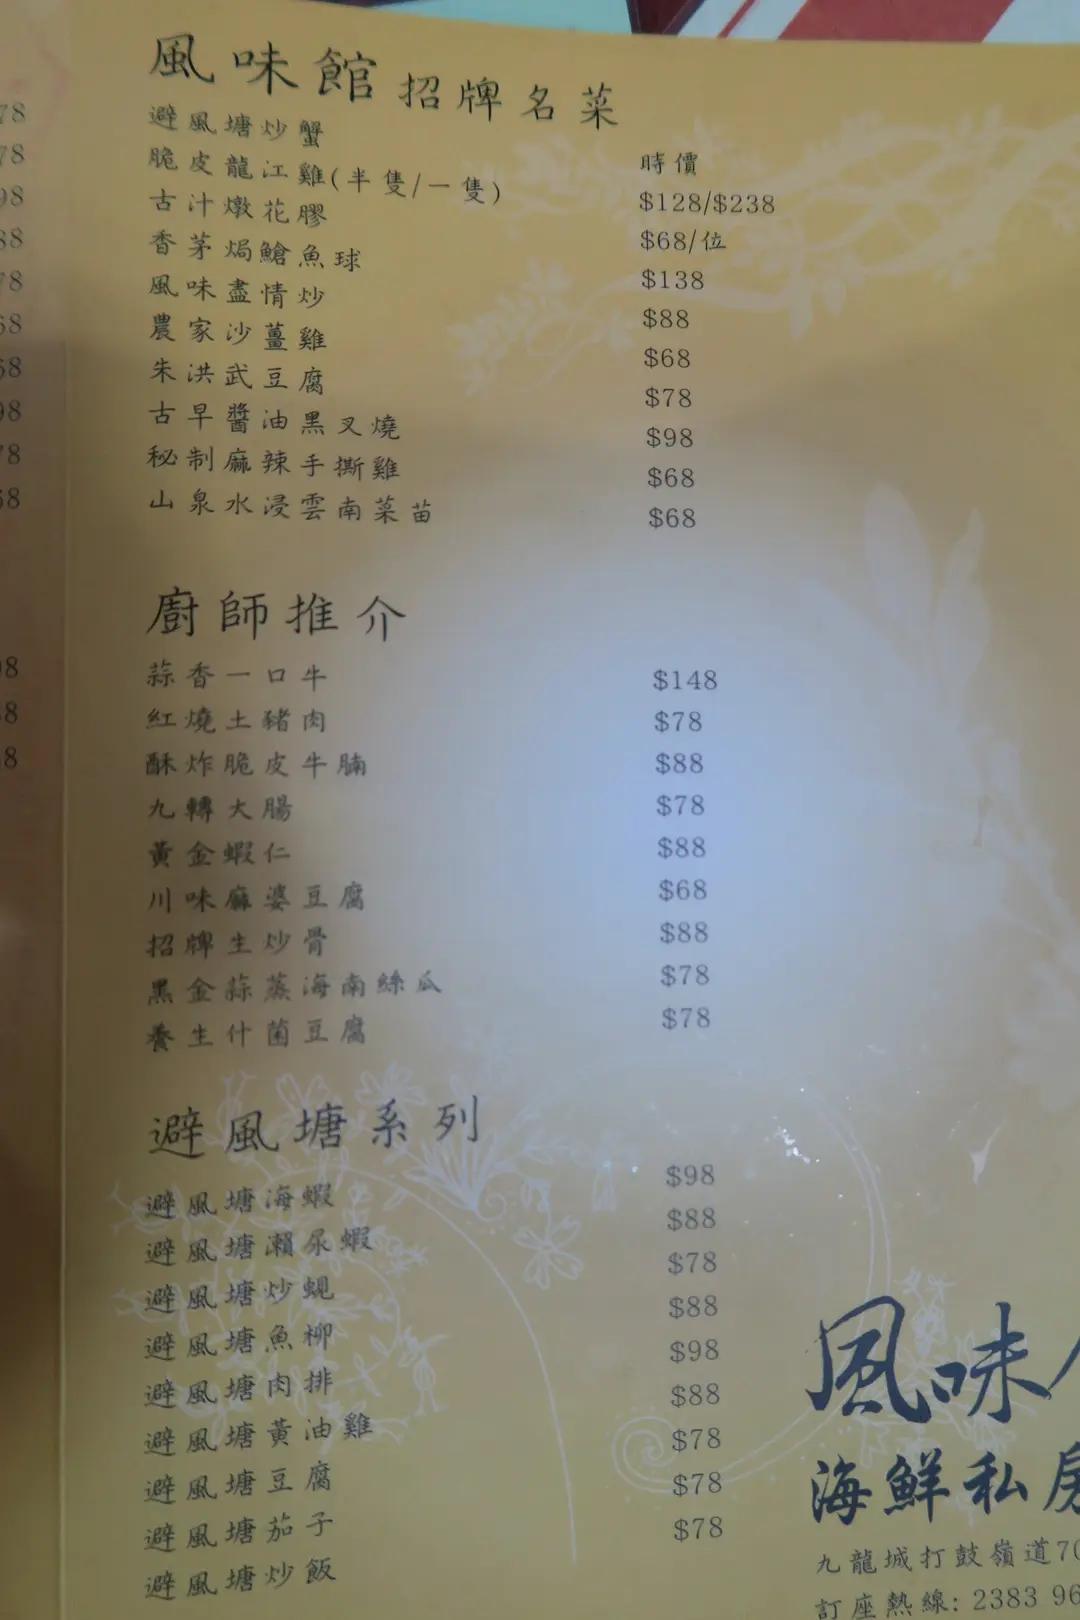 風味館招牌名菜
避風塘炒蟹 時價
脆皮龍江雞(半隻/一隻) $128/$238
古汁燉花膠 $68/位
香茅焗鯧魚球 $138
風味盡情炒 $88
農家沙薑雞 $68
朱洪武豆腐 $78
古早醬油黑叉燒 $98
秘制麻辣手撕雞 $68
山泉水浸雲南菜苗 $68
廚師推介
蒜香一口牛 $148
紅燒土豬肉 $78
酥炸脆皮牛腩 $88
九轉大腸 $78
黃金蝦仁 $88
川味麻婆豆腐 $68
招牌生炒骨 $88
黑金蒜蒸海南絲瓜 $78
養生什菌豆腐 $78
避風塘系列
避風塘海蝦 $98
避風塘瀨尿蝦 $88
避風塘炒蜆 $78
避風塘魚柳 $88
避風塘肉排 $98
避風塘黃油雞 $88
避風塘豆腐 $78
避風塘茄子 $78
避風塘炒飯 $78
風味
海鮮私房
九龍城打鼓嶺道70
訂座熱線: 2383 96